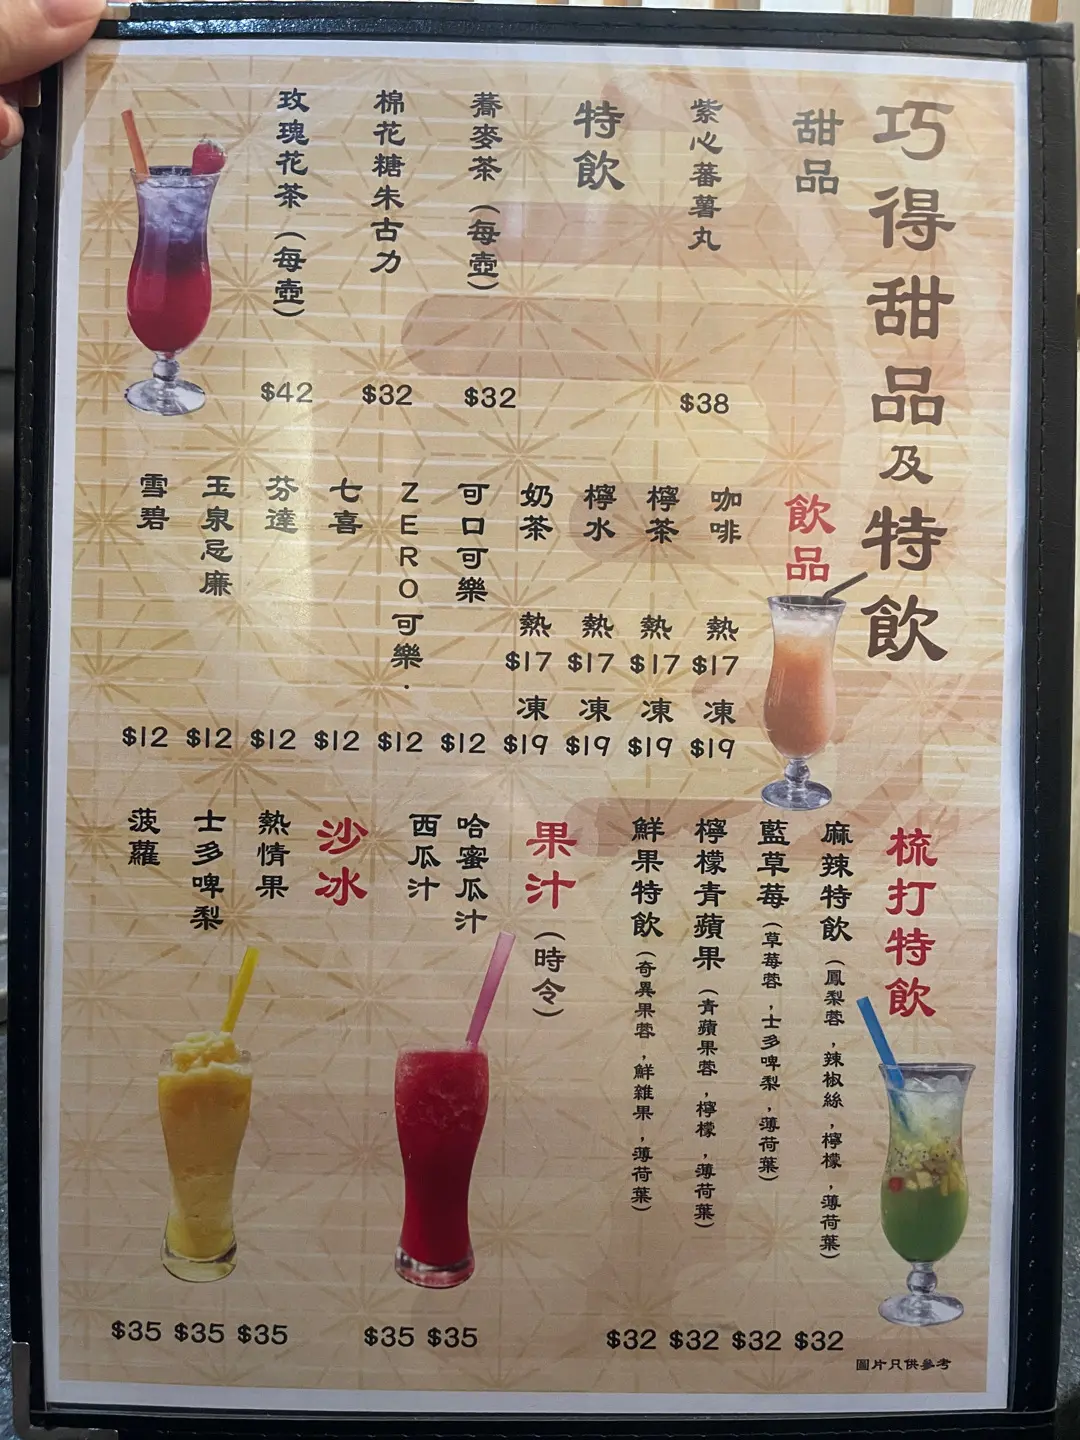 巧得甜品及特飲
甜品
紫心蕃薯丸 $38
特飲
蕎麥茶（每壺） $32
棉花糖朱古力 $32
玫瑰花茶（每壺） $42
飲品
咖啡 熱 $17 凍 $19
檸茶 熱 $17 凍 $19
檸水 熱 $17 凍 $19
奶茶 熱 $17 凍 $19
可口可樂 $12
ZERO可樂. $12
七喜 $12
芬達 $12
玉泉忌廉 $12
雪碧 $12
梳打特飲
麻辣特飲（鳳梨蓉，辣椒絲，檸檬，薄荷葉） $32
藍草莓（草莓蓉，士多啤梨，薄荷葉） $32
檸檬青蘋果（青蘋果蓉，檸檬，薄荷葉） $32
鮮果特飲（奇異果蓉，鮮雜果，薄荷葉） $32
果汁（時令）
哈蜜瓜汁 $35
西瓜汁 $35
沙冰
熱情果 $35
士多啤梨 $35
菠蘿 $35
圖片只供參考